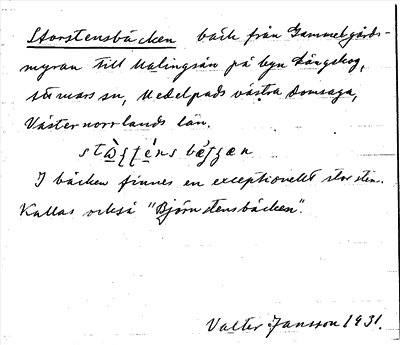 Storstensbäcken bäck från Gammelgårds-
myran till Malingsån på byn Längskog,
Stuvars sn, Medelpads västra domsaga,
Västernorrlands län.
I bäcken finnes en exceptionellt stor sten.
Kallas också "Björnstensbäcken".
Valter Jansson 1931.